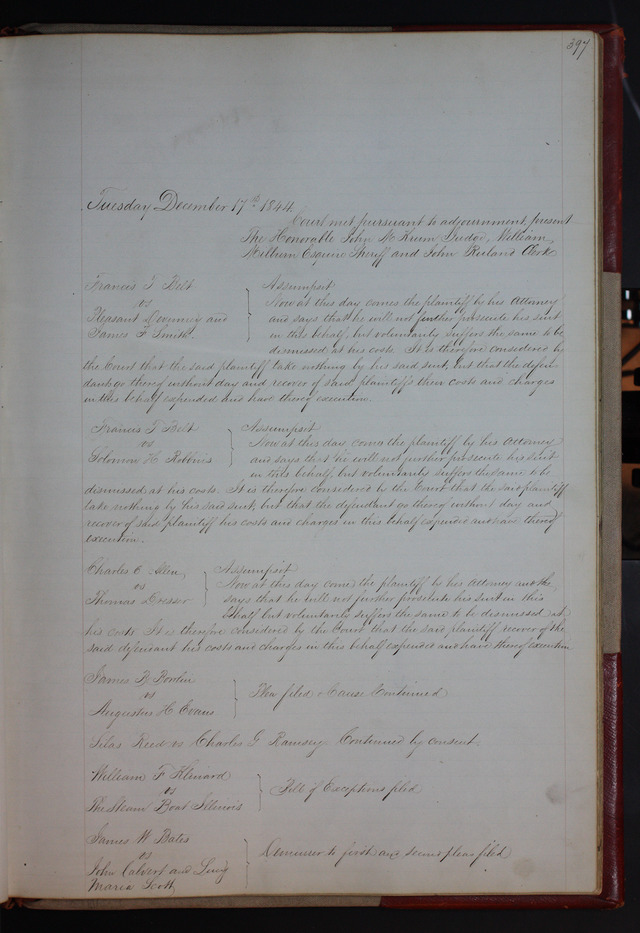 397
Tuesday December 17th 1844
Court met pursuant to adjournment, present
The Honorable John M Krum Judge, William
Milburn Esquire Sheriff and John Ruland Clerk
Francis T Belt
vs
Pleasant Devinney and
James F Smith
Assumpsit
Now at this day comes the plaintiff by his Attorney
and says that he will not further prosecute his suit
in this behalf, but voluntarily suffers the same to be
dismissed at his costs. It is therefore considered by
the Court that the said plaintiff take nothing by his said suit, but that the defen
dants go thereof without day and recover of said plaintiff their costs and charges
in this behalf expended and have thereof execution.
Francis T Belt
vs
Solomon H Robbins
Assumpsit
Now at this day comes the plaintiff by his Attorney
and says that he will not further prosecute his suit
in this behalf, but voluntarily suffers the same to be
dismissed at his costs. It is therefore considered by the Court that the said plaintiff
take nothing by his said suit, but that the defendant go thereof without day and
recover of said plaintiff his costs and charges in this behalf expended and have thereof
execution.
Charles C Allen
vs
Thomas Dresser
Assumpsit
Now at this day comes the plaintiff by his Attorney and
says that he will not further prosecute his suit in this
behalf but voluntarily suffers the same to be dismissed at
his costs. It is therefore considered by the Court that the said plaintiff recover of the
said defendant his costs and charges in this behalf expended and have thereof execution
James B Bowlin
vs
Augustus H Evans
Plea filed & Cause Continued
Silas Reed vs Charles G Ramsey Continued by consent.
William F
vs
The Steam Boat Illinois
Bill of Exceptions filed
James W Bates
vs
John Calvert and Lucy
Maria Scott
Demurrer to first and second pleas filed